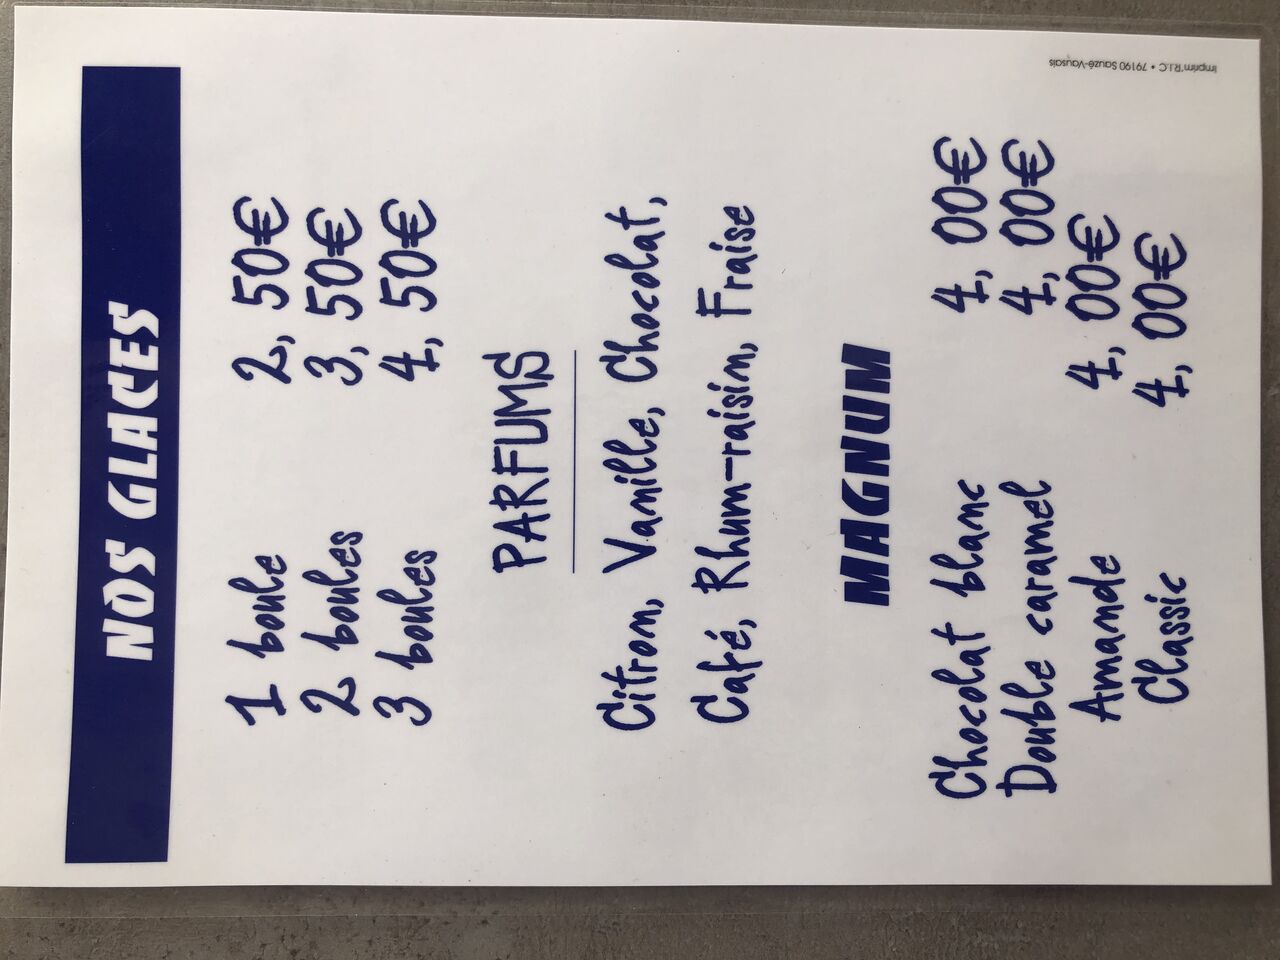 NOS GLACES
1 boule 2,50€
2 boules 3,50€
3 boules 4,50€
PARFUMS
Citron, Vanille, Chocolat,
Café, Rhum-raisin, Fraise
MAGNUM
Chocolat blanc 4,00€
Double caramel 4,00€
Amande 4,00€
Classic 4,00€
Imprim'R.I.C • 79190 Sauzé-Vaussais